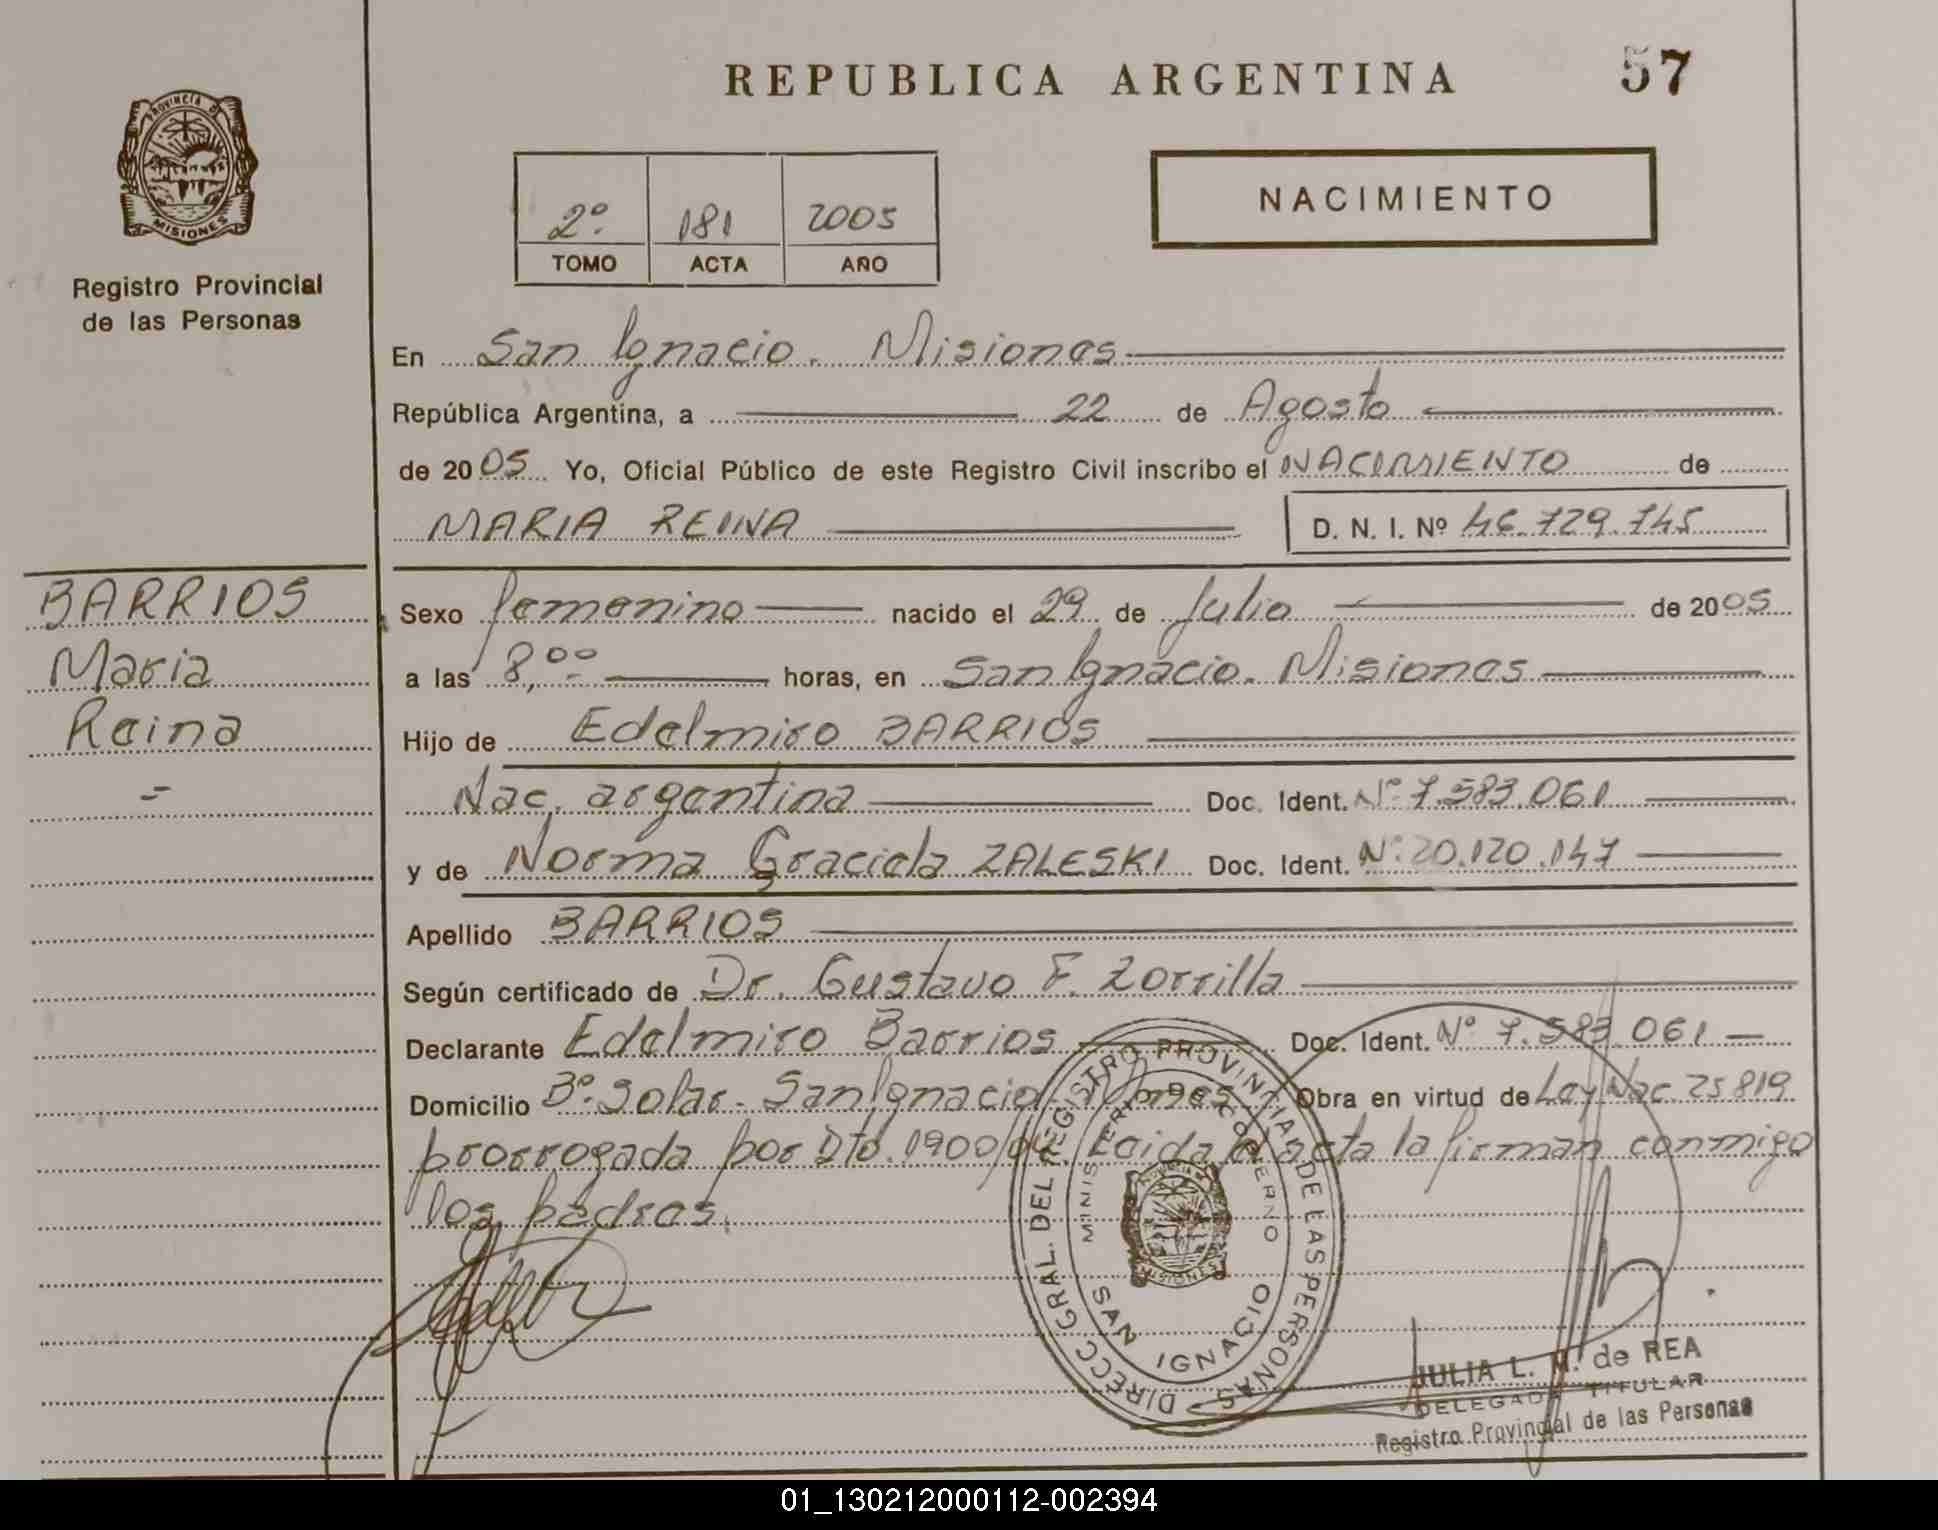 REPUBLICA ARGENTINA
57
PROVINCIA DE
MISIONES
Registro Provincial
de las Personas
2º 181 2005
TOMO ACTA AÑO
NACIMIENTO
En San Ignacio. Misiones
República Argentina, a 22 de Agosto
de 2005 Yo, Oficial Público de este Registro Civil inscribo el NACIMIENTO de
MARIA REINA D. N. I. Nº 46.729.745
BARRIOS
Maria
Reina
Sexo femenino nacido el 29 de Julio de 2005
a las 8,00 horas, en San Ignacio. Misiones
Hijo de Edelmiro BARRIOS
Nac. argentina Doc. Ident. Nº 7.583.061
y de Norma Graciela ZALESKI Doc. Ident. Nº 20.120.147
Apellido BARRIOS
Según certificado de Dr. Gustavo F. Zorrilla
Declarante Edelmiro Barrios Doc. Ident. Nº 7.583.061
Domicilio Bº Solar. San Ignacio. Mnes Obra en virtud de Ley Nac. 25819
prorrogada por Dto. 1900/04. Leida el acta la firman conmigo
los padres.
DIRECC. GRAL. DEL REGISTRO PROVINCIAL DE LAS PERSONAS
MINISTERIO DE GOBIERNO
MISIONES
SAN IGNACIO
JULIA L. M. de REA
DELEGADA TITULAR
Registro Provincial de las Personas
01_130212000112-002394